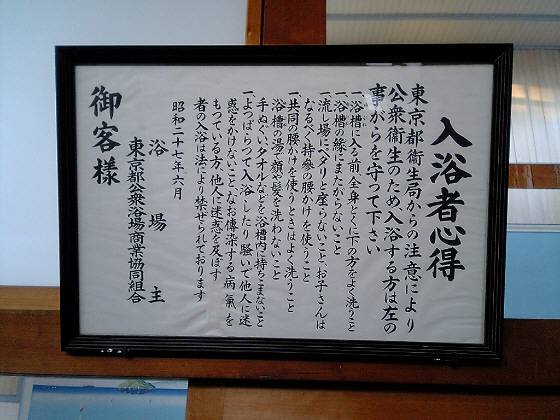 入浴者心得
東京都衛生局からの注意により
公衆衛生のため入浴する方は左の
事がらを守って下さい
一、浴槽に入る前、全身とくに下の方をよく洗うこと
一、浴槽の縁にまたがらないこと
一、流し場にペタリと座らないこと、お子さんは
なるべく持参の腰かけを使うこと
一、共同の腰かけを使うときはよく洗うこと
浴槽の湯で顔や髪を洗わないこと
手ぬぐい、タオルなどを浴槽内に持ちこまないこと
一、よつぱらつて入浴したり騒いで他人に迷
惑をかけないこと、なお傳染する病氣を
もつている方、他人に迷惑を及ぼす
者の入浴は法により禁ぜられております
昭和二十七年六月
浴場主
東京都公衆浴場商業協同組合
御客様